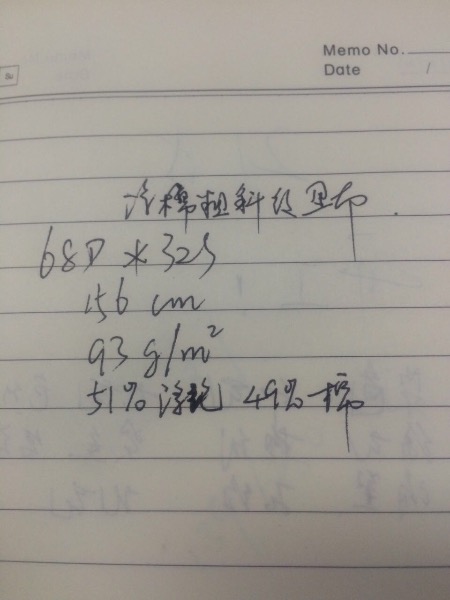 Memo No.
Date /
涤棉粗斜纹里布.
68D * 32S
156 cm
93 g/m²
51% 涤纶 49% 棉